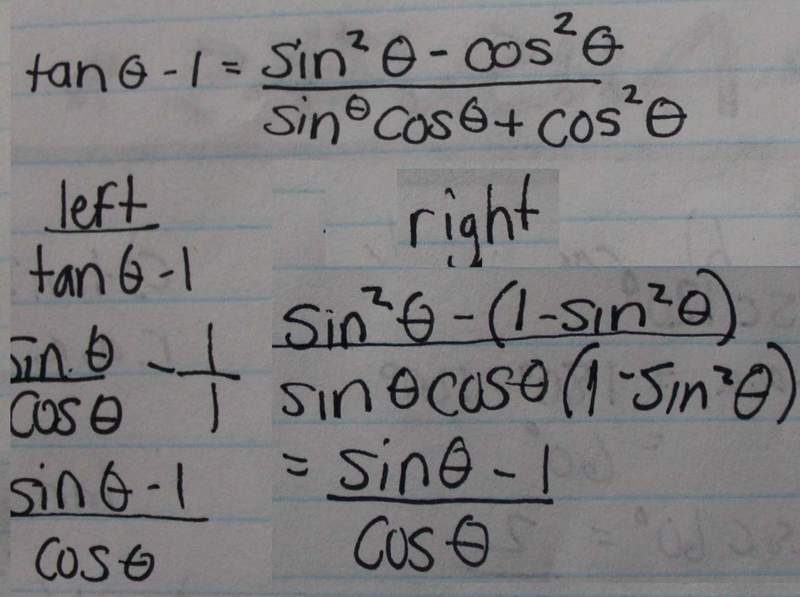 tan θ - 1 = (sin² θ - cos² θ) / (sin θ cos θ + cos² θ)
left
tan θ - 1
sin θ / cos θ - 1/1
(sin θ - 1) / cos θ
right
(sin² θ - (1 - sin² θ)) / (sin θ cos θ (1 - sin² θ))
= (sin θ - 1) / cos θ